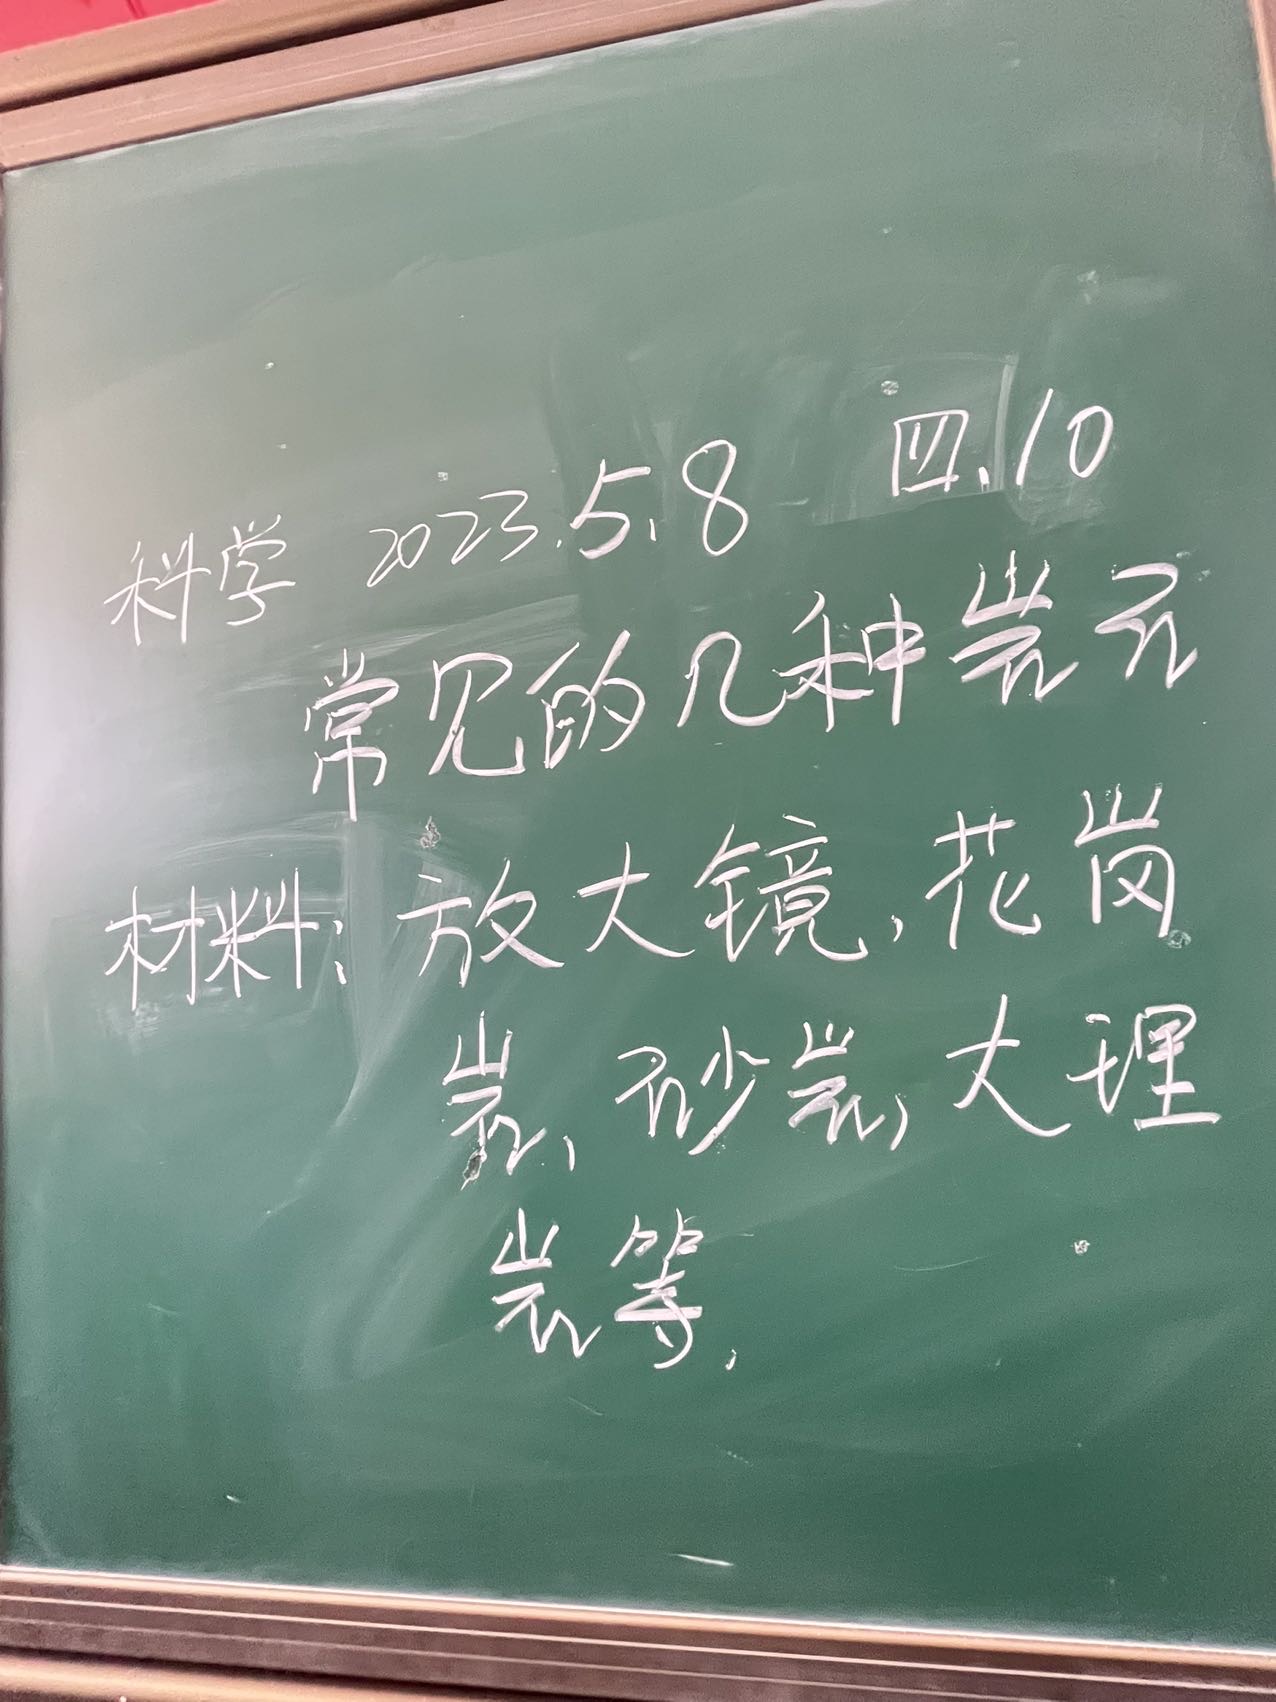 科学 2023.5.8 四.10
常见的几种岩石
材料:放大镜,花岗
岩、砂岩,大理
岩等.